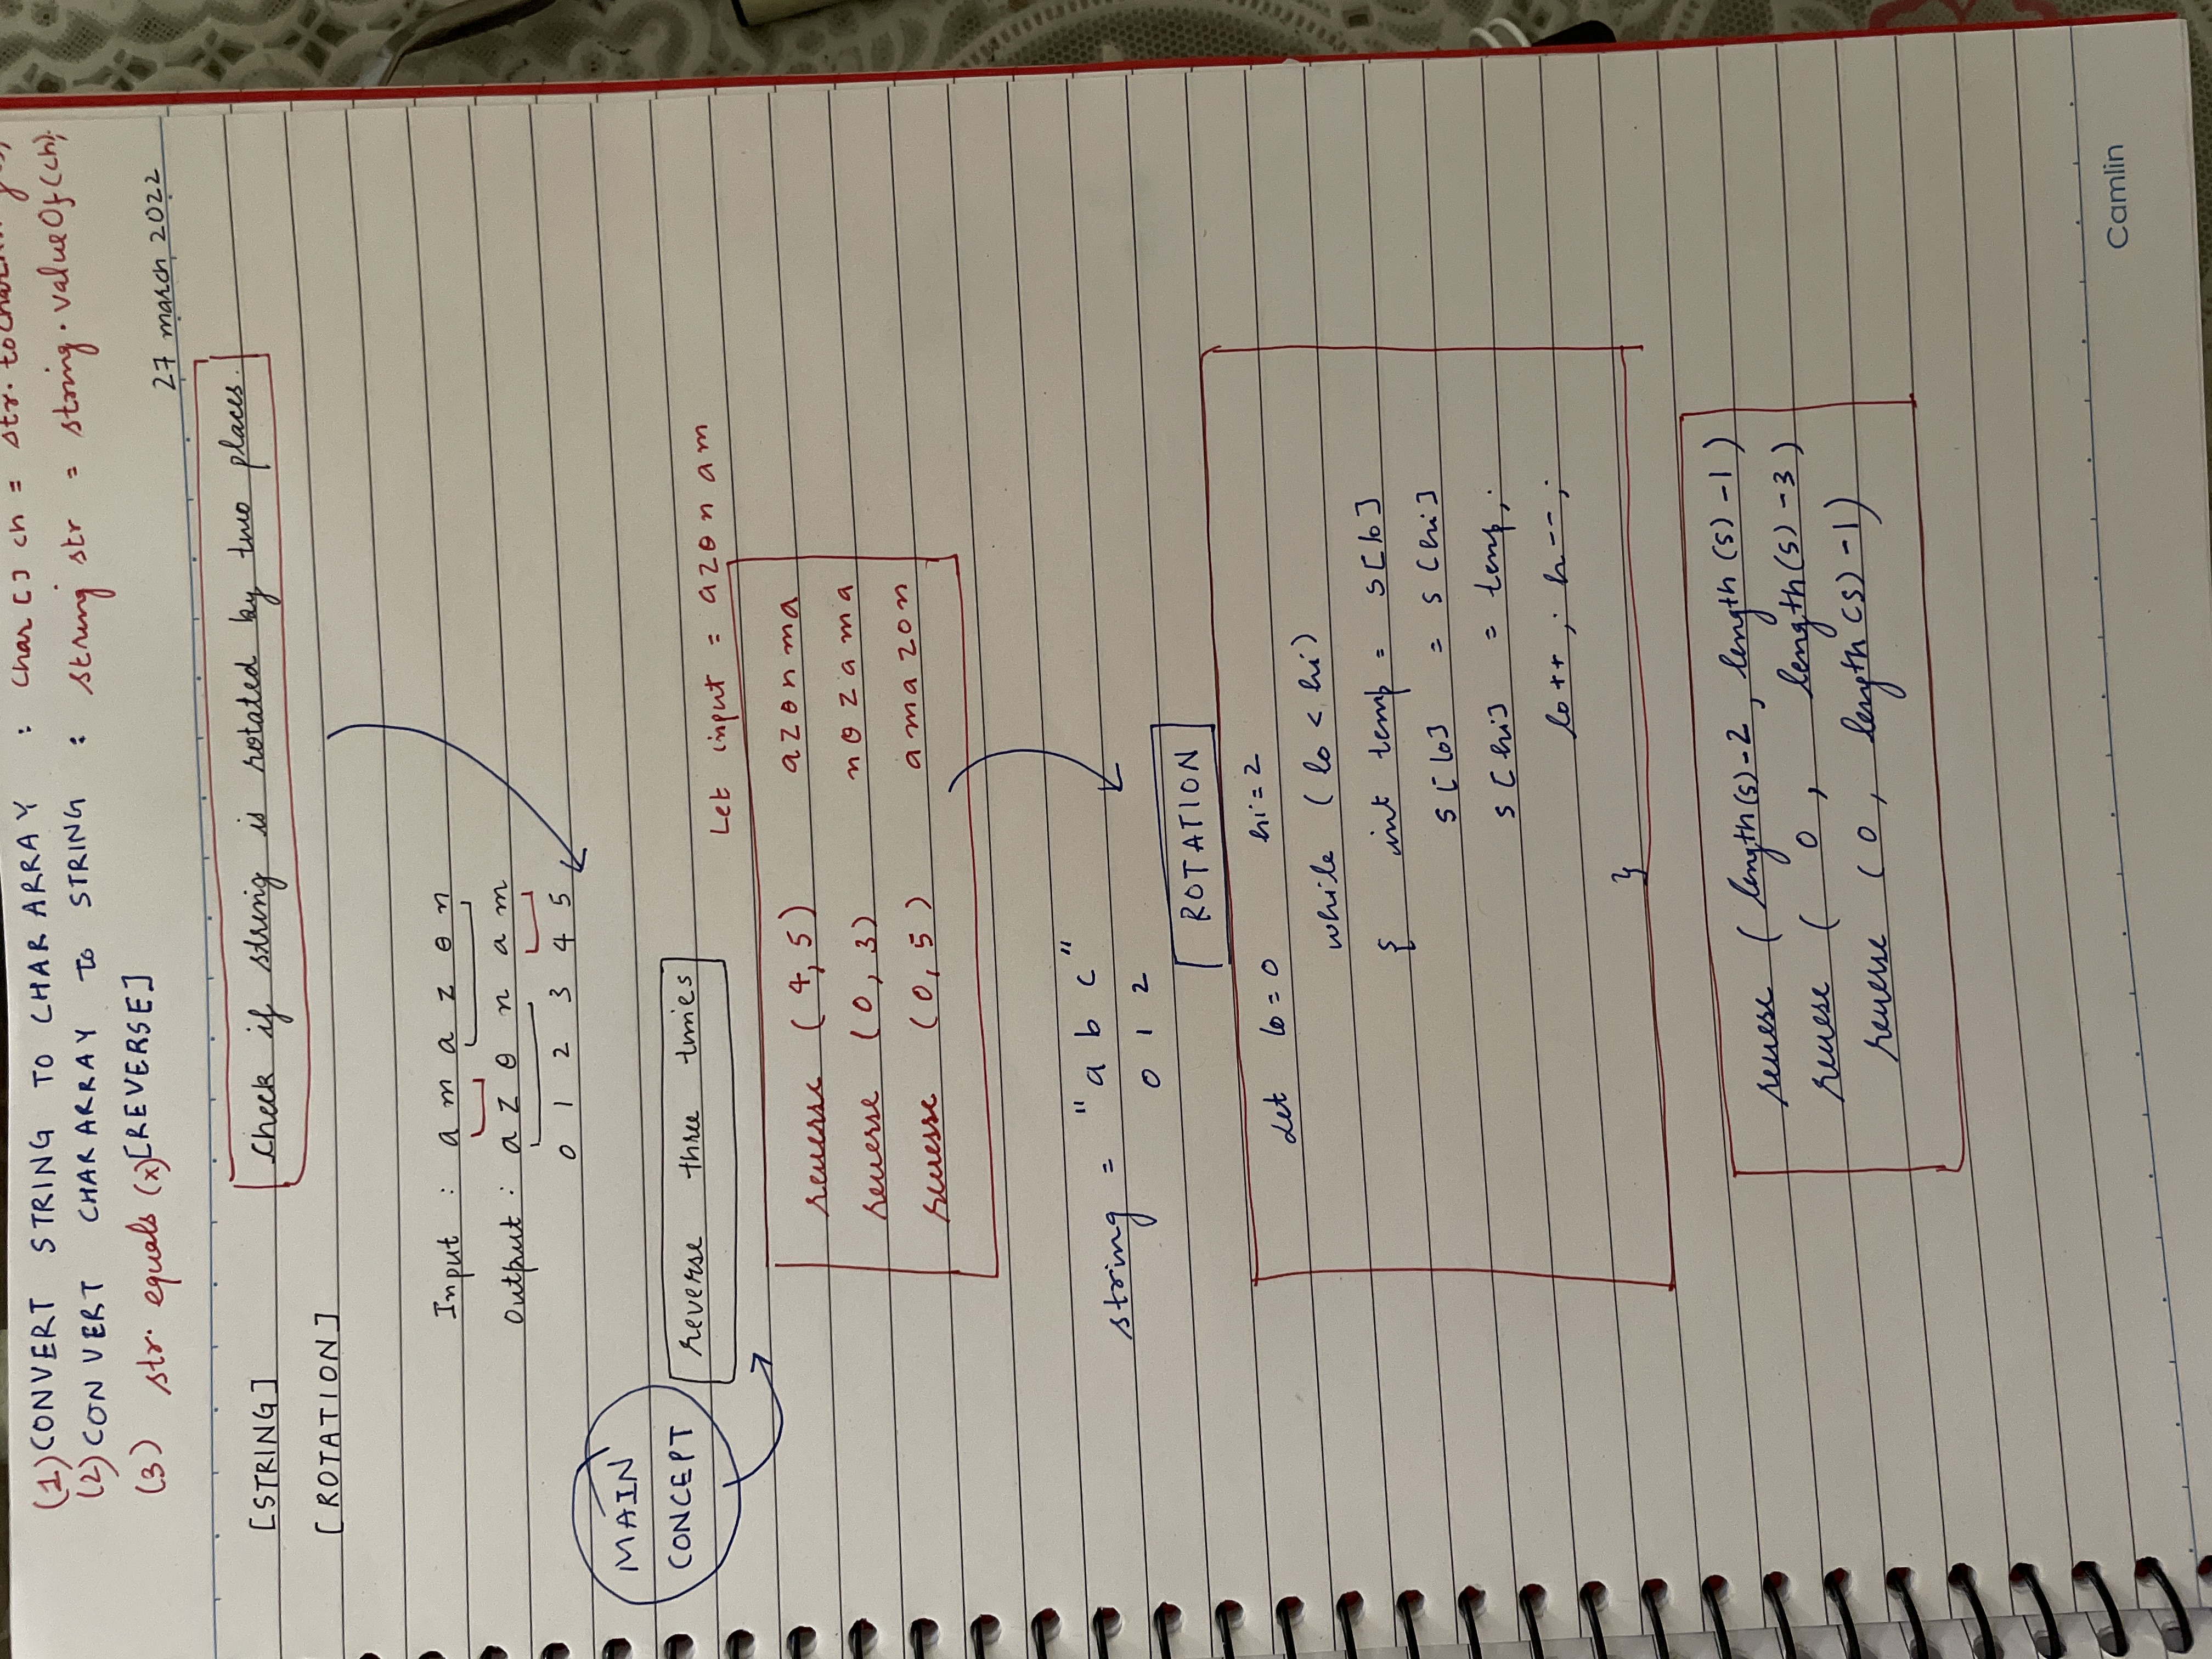 (1) CONVERT STRING TO CHAR ARRAY : Char [] ch = str.
(2) CONVERT CHAR ARRAY to STRING : string str = string.valueOf(ch);
(3) str. equals (x) [REVERSE]
27 march 2022
[STRING] Check if string is rotated by two places.
[ROTATION]
Input : a m a z o n
Output : a z o n a m
0 1 2 3 4 5
MAIN
CONCEPT
reverse three times
Let input = azonam
reverse (4, 5) azonma
reverse (0, 3) nozama
reverse (0, 5) amazon
string = "a b c"
0 1 2
ROTATION
Let lo=0 hi=2
while (lo < hi)
{ int temp = s[lo]
s[lo] = s[hi]
s[hi] = temp;
lo++; h--;
}
reverse (length(s)-2, length(s)-1)
reverse ( 0, length(s)-3)
reverse (0, length(s)-1)
Camlin